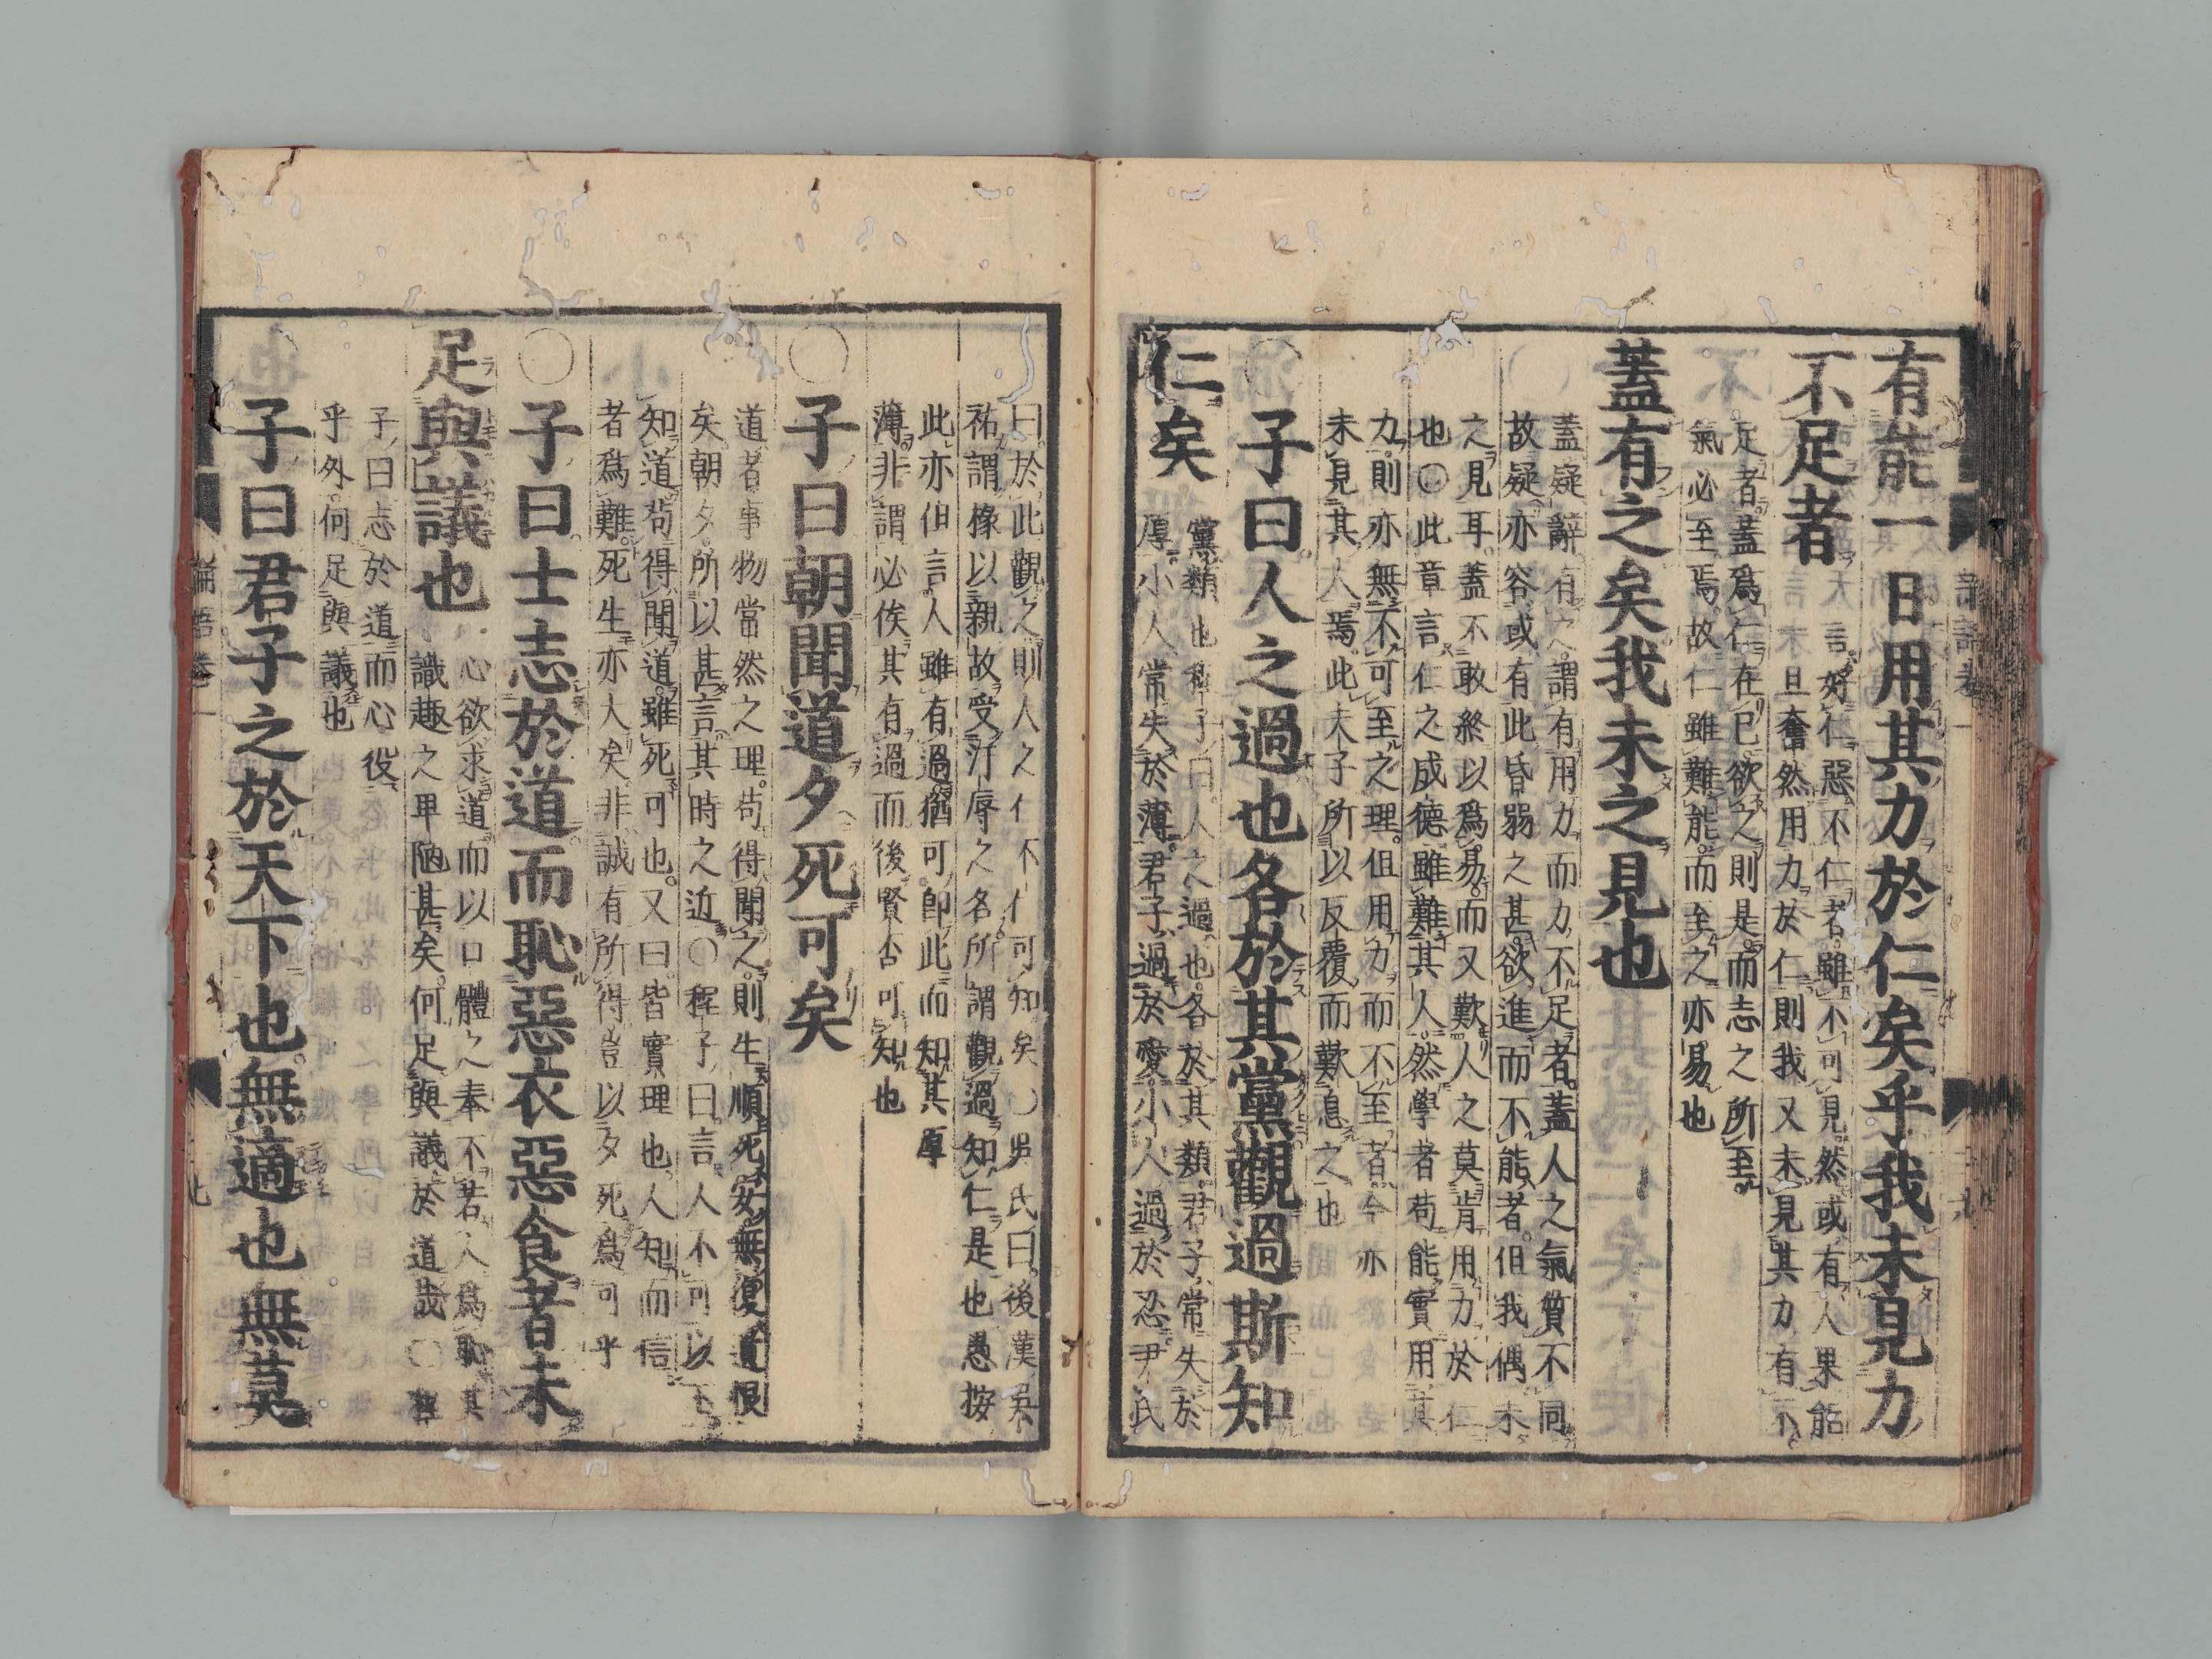 有能一日用其力於仁矣乎我未見力
不足者
言好仁惡不仁者雖不可見然或有人果能
一旦奮然用力於仁則我又未見其力有不
足者蓋爲仁在已欲之則是而志之所至
氣必至焉故仁雖難能而至之亦易也
蓋有之矣我未之見也
蓋疑辭有之謂有用力而力不足者蓋人之氣質不同
故疑亦容或有此昏弱之甚欲進而不能者但我偶未
之見耳蓋不敢終以爲易而又歎人之莫肯用力於仁
也○此章言仁之成德雖難其人然學者苟能實用其
力則亦無不可至之理但用力而不至者今亦
未見其人焉此夫子所以反覆而歎息之也
○子曰人之過也各於其黨觀過斯知
仁矣
黨類也程子曰人之過也各於其類君子常失於
厚小人常失於薄君子過於愛小人過於忍尹氏
曰於此觀之則人之仁不仁可知矣○吳氏曰後漢吳
祐謂掾以親故受汙辱之名所謂觀過知仁是也愚按
此亦但言人雖有過猶可即此而知其厚
薄非謂必俟其有過而後賢否可知也
○子曰朝聞道夕死可矣
道者事物當然之理苟得聞之則生順死安無復遺恨
矣朝夕所以甚言其時之近○程子曰言人不可以不
知道苟得聞道雖死可也又曰皆實理也人知而信
者爲難死生亦大矣非誠有所得豈以夕死爲可乎
○子曰士志於道而恥惡衣惡食者未
足與議也
心欲求道而以口體之奉不若人爲恥其
識趣之卑陋甚矣何足與議於道哉○程
子曰志於道而心役
乎外何足與議也
○子曰君子之於天下也無適也無莫
論語卷一 七